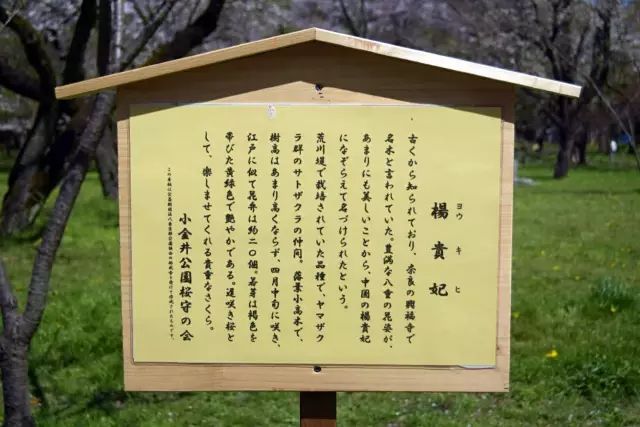 楊貴妃
ヨウキヒ
古くから知られており、奈良の興福寺で
名木と言われていた。豊満な八重の花姿が、
あまりにも美しいことから、中国の楊貴妃
になぞらえて名づけられたという。
荒川堤で栽培されていた品種で、ヤマザク
ラ群のサトザクラの仲間。落葉小高木で、
樹高はあまり高くならず、四月中旬に咲き、
江戸に似て花弁は約二〇個。若芽は褐色を
帯びた黄緑色で艶やかである。遅咲き桜と
して、楽しませてくれる貴重なさくら。
小金井公園桜守の会